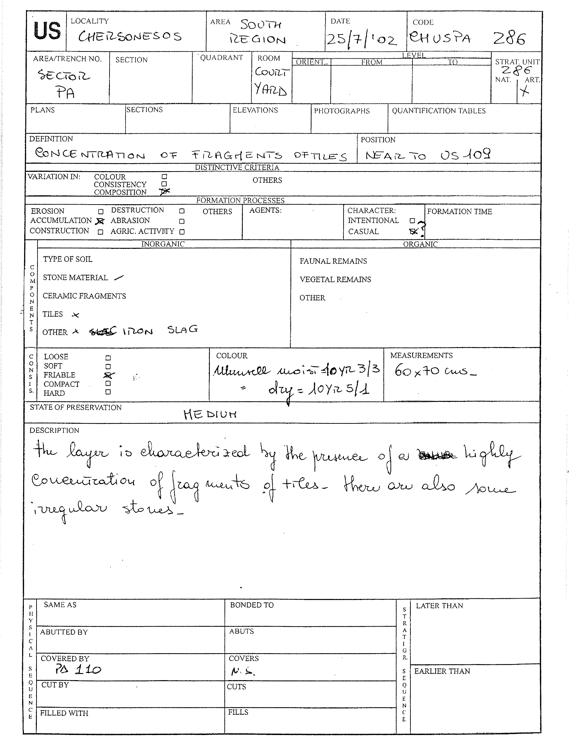 US
LOCALITY
CHERSONESOS
AREA SOUTH
REGION
DATE
25/7/'02
CODE
CHUSPA 286
AREA/TRENCH NO.
SECTOR
PA
SECTION
QUADRANT
ROOM
COURT
YARD
LEVEL
ORIENT. FROM TO
STRAT. UNIT
286
NAT. ART.
x
PLANS
SECTIONS
ELEVATIONS
PHOTOGRAPHS
QUANTIFICATION TABLES
DEFINITION
CONCENTRATION OF FRAGMENTS OF TILES
POSITION
NEAR TO US 109
DISTINCTIVE CRITERIA
VARIATION IN: COLOUR
CONSISTENCY
COMPOSITION x
OTHERS
FORMATION PROCESSES
EROSION
ACCUMULATION x
CONSTRUCTION
DESTRUCTION
ABRASION
AGRIC. ACTIVITY
OTHERS
AGENTS:
CHARACTER:
INTENTIONAL
CASUAL x ?
FORMATION TIME
COMPONENTS
INORGANIC
TYPE OF SOIL
STONE MATERIAL /
CERAMIC FRAGMENTS
TILES x
OTHER x IRON SLAG
ORGANIC
FAUNAL REMAINS
VEGETAL REMAINS
OTHER
CONSIS.
LOOSE
SOFT
FRIABLE x
COMPACT
HARD
COLOUR
Munsell moist = 10YR 3/3
" dry = 10YR 5/1
MEASUREMENTS
60 x 70 cms_
STATE OF PRESERVATION
MEDIUM
DESCRIPTION
the layer is characterized by the presence of a highly
concentration of fragments of tiles_ there are also some
irregular stones_
PHYSICAL SEQUENCE
SAME AS
BONDED TO
ABUTTED BY
ABUTS
COVERED BY
PA 110
COVERS
N.S.
CUT BY
CUTS
FILLED WITH
FILLS
STRATIGR. SEQUENCE
LATER THAN
EARLIER THAN